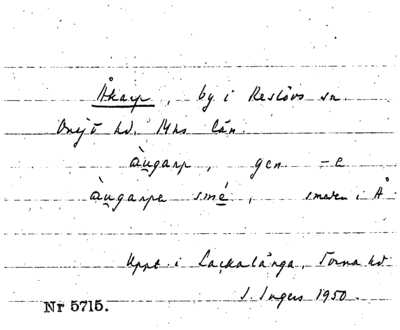 Åkarp, by i Reslövs sn.
Onsjö hd. Mhs län.
àu̯garp, gen -a
àu̯garpa smé, smeden i Å
Uppt i Lackalänga, Torna hd
I. Ingers 1950.
Nr 5715.